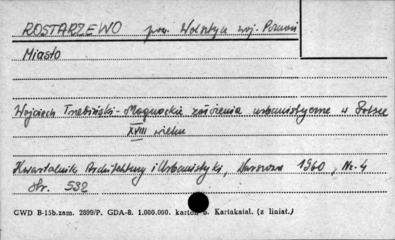 ROSTARZEWO pow. Wolsztyn woj. Poznań
Miasto
Wojciech Trzebiński - Magnackie założenia urbanistyczne w Polsce
XVIII wieku
Kwartalnik Architektury i Urbanistyki, Warszawa 1960, Nr. 4
Str. 532
GWD B-15b.zam. 2899/P. GDA-8. 1.000.000. karton b. Kartakatal. (z liniat.)